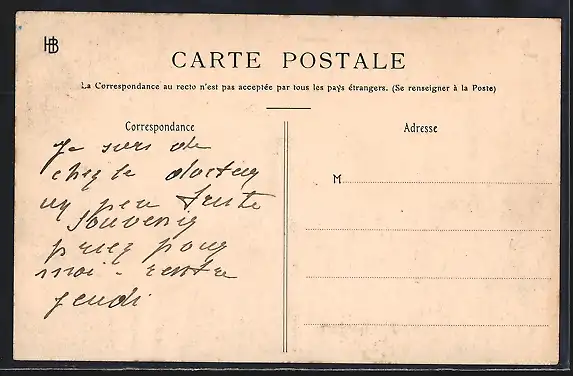 HB
CARTE POSTALE
La Correspondance au recto n'est pas acceptée par tous les pays étrangers. (Se renseigner à la Poste)
Correspondance
Adresse
M
Je sors de
chez le docteur
un peu triste
Souvenir
priez pour
moi - rentre
jeudi